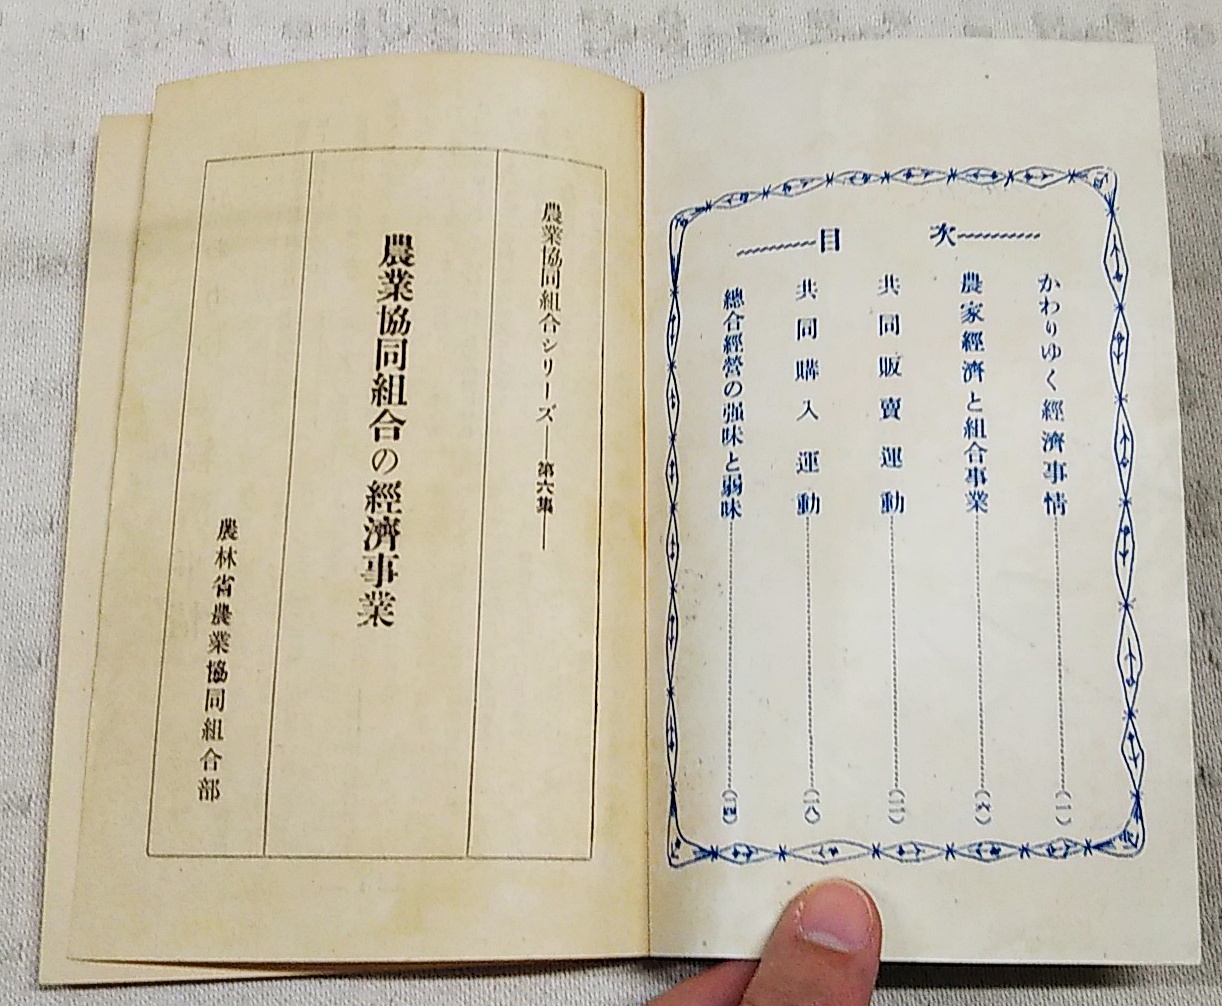 目次
かわりゆく經濟事情……(一)
農家經濟と組合事業……(六)
共同販賣運動……
共同購入運動……(一八)
總合經營の强味と弱味……(二四)
農業協同組合シリーズ―第六集―
農業協同組合の經濟事業
農林省農業協同組合部